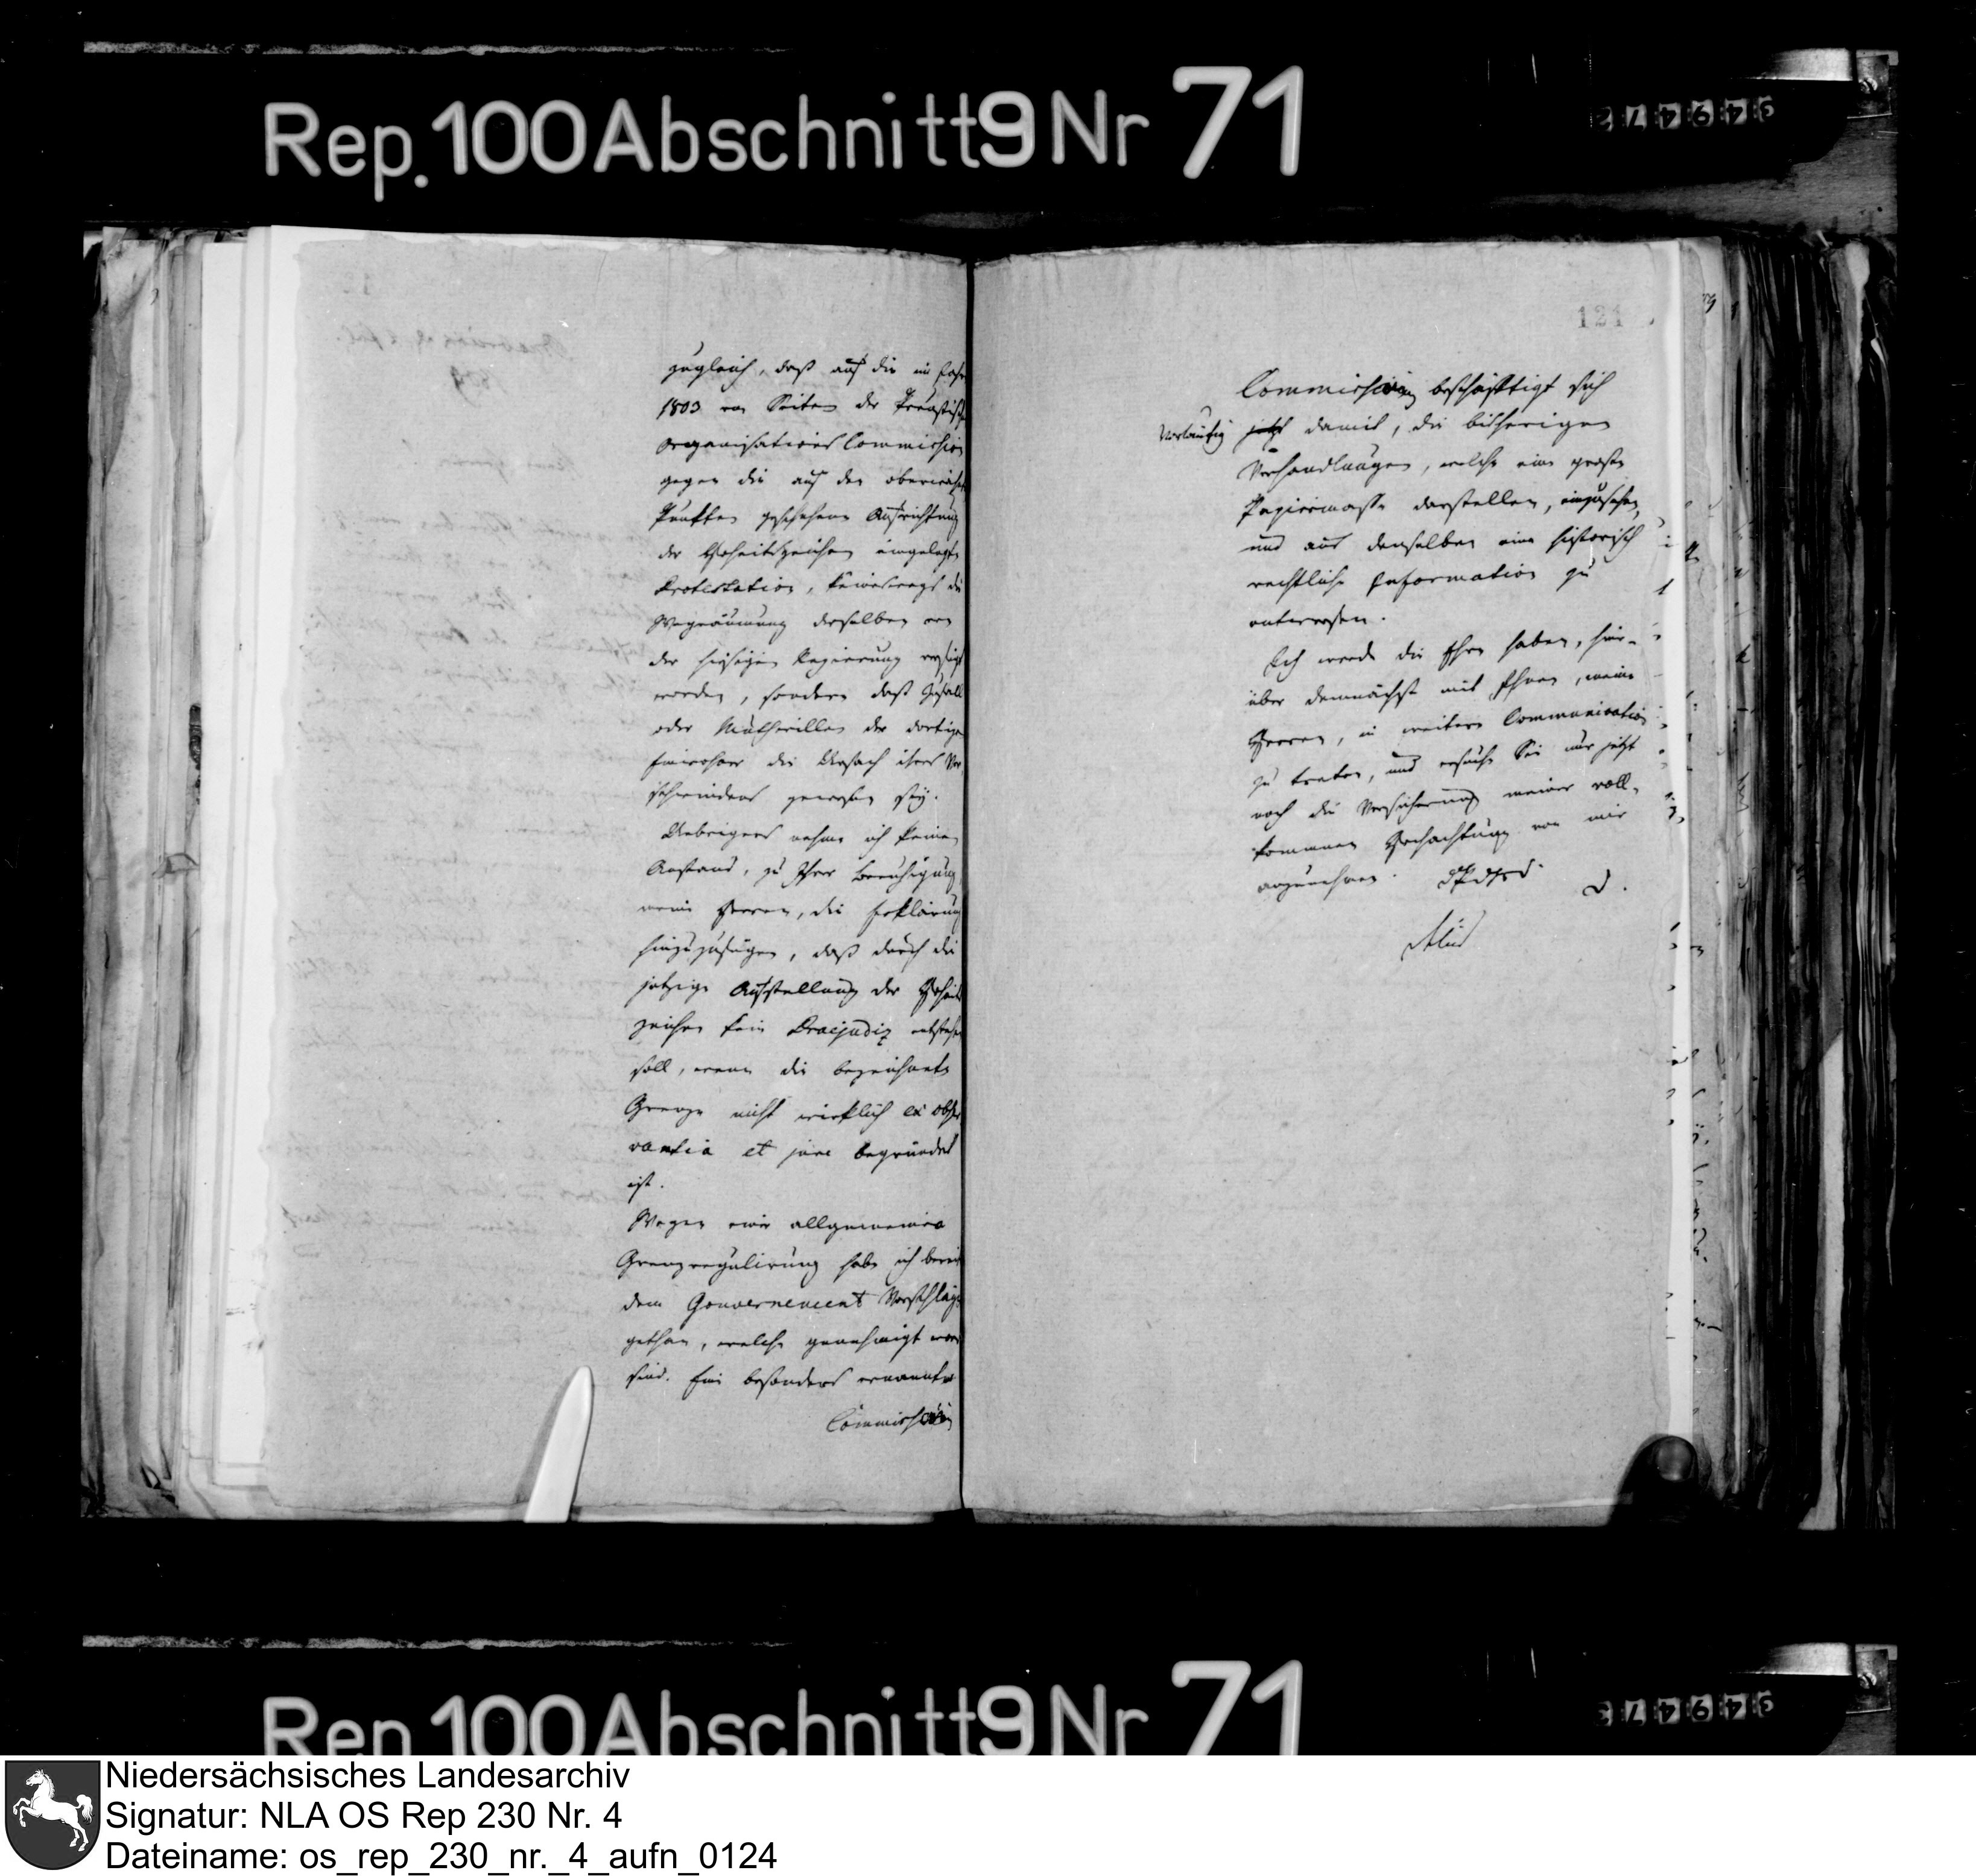 Rep. 100 Abschnitt 9 Nr 71
zugleich, daß auf die im Jahr
1803 von Seiten der Preußisch
Organisations Commission
gegen die auf den oberwähnt
Punkten geschehene Aufrichtung
der Hoheitszeichen eingelegte
Protestation, keinesweges die
Wegräumung derselben von
der hiesigen Regierung verfügt
worden, sondern daß Zufall
oder Muthwillen der dortigen
Einwohner die Ursach ihres Ver
schwindens gewesen sey.
Uebrigens nehme ich keinen
Anstand, zu Ihrer Beruhigung,
meine Herren, die Erklärung
hinzuzufügen, daß durch die
jetzige Aufstellung der Hoheits
zeichen kein Praejudiz entstehen
soll, wenn die bezeichnete
Grenze nicht wirklich ex obser
vantia et jure begründet
ist.
Wegen einer allgemeinen
Grenzregulirung habe ich bereits
dem Gouvernement Vorschläge
gethan, welche genehmigt worden
sind. Eine besonders ernannte
Commission
121
Commission beschäftigt sich
vorläufig jetzt damit, die bisherigen
Verhandlungen, welche eine große
Papiermasse darstellen, einzusehen,
und aus denselben eine historisch
rechtliche Information zu
entwerfen.
Ich werde die Ehre haben, hier-
über demnächst mit Ihnen, meine
Herren, in weitere Communication
zu treten, und ersuche Sie nur jetzt
noch die Versicherung meiner voll-
kommenen Hochachtung von mir
anzunehmen.
Rep. 100 Abschnitt 9 Nr 71
Niedersächsisches Landesarchiv
Signatur: NLA OS Rep 230 Nr. 4
Dateiname: os_rep_230_nr._4_aufn_0124